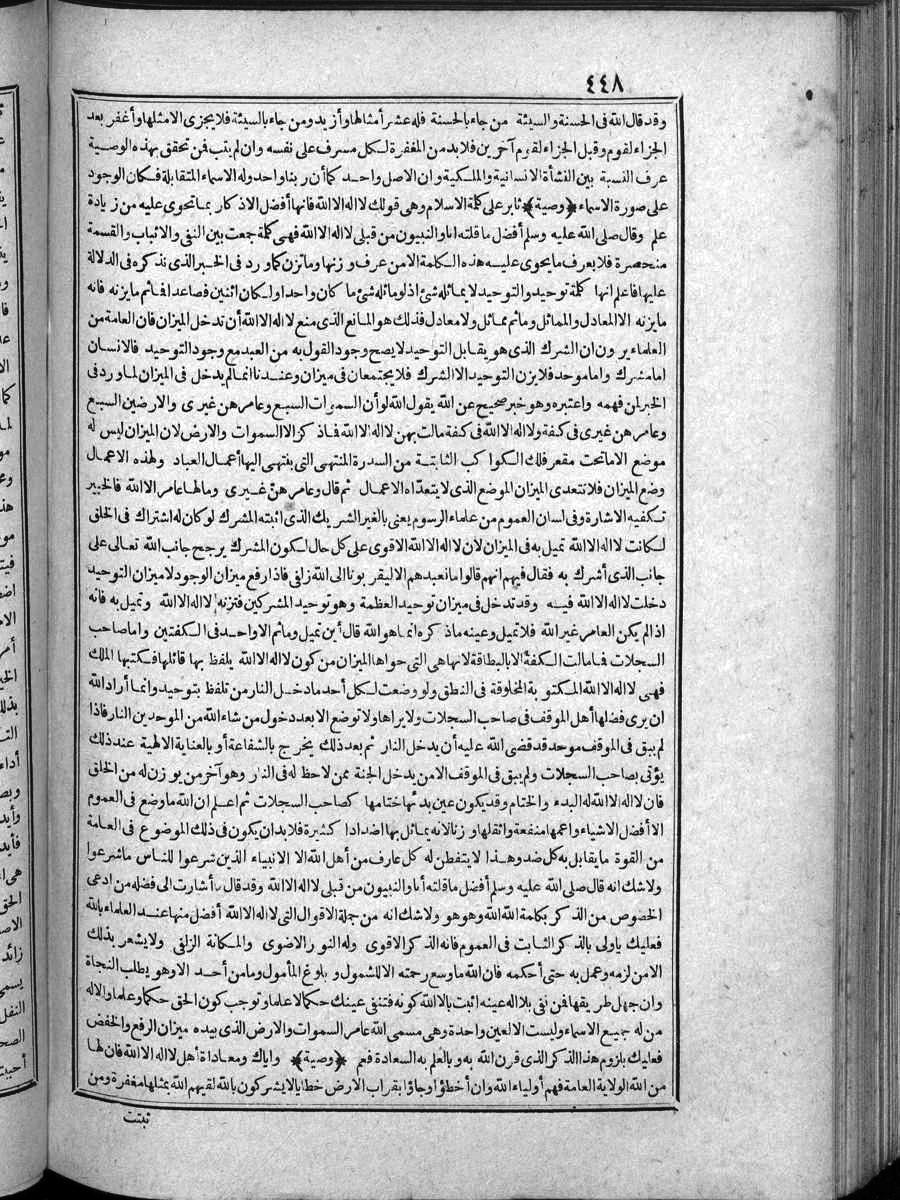 ٤٤٨
وقد قال الله فى الحسنة والسيئة من جاء بالحسنة فله عشر أمثالها وأزيد ومن جاء بالسيئة فلا يجزى الا مثلها وأغفر بعد
الجزاء لقوم وقبل الجزاء لقوم آخرين فلابد من المغفرة لكل مسرف على نفسه وان لم يتب فمن تحقق بهذه الوصية
عرف النسبة بين النشأة الانسانية والملكية وان الاصل واحد كما أن ربنا واحد وله الاسماء المتقابلة فكان الوجود
على صورة الاسماء ﴿وصية﴾ ثابر على كلمة الاسلام وهى قولك لا اله الا الله فانها أفضل الاذكار بما تحوى عليه من زيادة
علم وقال صلى الله عليه وسلم أفضل ما قلته انا والنبيون من قبلى لا اله الا الله فهى كلمة جمعت بين النفى والاثبات والقسمة
منحصرة فلا يعرف ما يحوى عليه هذه الكلمة الا من عرف وزنها وما تزن كما ورد فى الخبر الذى نذكره فى الدلالة
عليها فاعلم انها كلمة توحيد والتوحيد لا يماثله شئ اذ لو ماثله شئ ما كان واحدا ولكان اثنين فصاعدا فاثم ما يزنه فانه
ما يزنه الا المعادل والمماثل وما ثم مماثل ولا معادل فذلك هو المانع الذى منع لا اله الا الله أن تدخل الميزان فان العامة من
العلماء يرون ان الشرك الذى هو يقابل التوحيد لا يصح وجود القول به من العبد مع وجود التوحيد فالانسان
اما مشرك واما موحد فلا يزن التوحيد الا الشرك فلا يجتمعان فى ميزان وعندنا انما لم يدخل فى الميزان لما ورد فى
الخبر لمن فهمه واعتبره وهو خبر صحيح عن الله يقول الله لو أن السموات السبع وعامرهن غيرى والارضين السبع
وعامرهن غيرى فى كفة ولا اله الا الله فى كفة مالت بهن لا اله الا الله فاذكر الا السموات والارض لان الميزان ليس له
موضع الا ماتحت مقعر فلك الكواكب الثابتة من السدرة المنتهى التى ينتهى اليها أعمال العباد ولهذه الاعمال
وضع الميزان فلا تتعدى الميزان الموضع الذى لا يتعداه الاعمال ثم قال وعامرهن غيرى ومالها عامر الا الله فالخبير
تكفيه الاشارة وفى لسان العموم من علماء الرسوم يعنى بالغير الشريك الذى اثبته المشرك لو كان له اشتراك فى الخلق
لكانت لا اله الا الله تميل به فى الميزان لان لا اله الا الله الاقوى على كل حال لكون المشرك يرجح جانب الله تعالى على
جانب الذى أشرك به فقال فيهم انهم قالوا مانعبدهم الا ليقربونا الى الله زلفى فاذا رفع ميزان الوجود لا ميزان التوحيد
دخلت لا اله الا الله فيه وقد تدخل فى ميزان توحيد العظمة وهو توحيد المشركين فتزنه لا اله الا الله وتميل به فانه
اذا لم يكن العامر غير الله فلا تميل وعينه ما ذكره انما هو الله قال أين تميل وما ثم الا واحد فى الكفتين واما صاحب
السجلات فمامالت الكفة الا بالبطاقة لانها هى التى حواها الميزان من كون لا اله الا الله يلفظ بها قائلها فكتبها الملك
فهى لا اله الا الله المكتوبة المخلوقة فى النطق ولو وضعت لكل أحد ما دخل النار من تلفظ بتوحيد وانما أراد الله
ان يرى فضلها أهل الموقف فى صاحب السجلات ولا يراها ولا توضع الا بعد دخول من شاء الله من الموحدين النار فاذا
لم يبق فى الموقف موحد قد قضى الله عليه أن يدخل النار ثم بعد ذلك يخرج بالشفاعة أو بالعناية الالهية عند ذلك
يؤتى بصاحب السجلات ولم يبق فى الموقف الا من يدخل الجنة ممن لاحظ له فى النار وهو آخر من يوزن له من الخلق
فان لا اله الا الله له البدء والختام وقد يكون عين بدئها ختامها كصاحب السجلات ثم اعلم ان الله ما وضع فى العموم
الا أفضل الاشياء واعمها منفعة واثقلها وزنا لانه يماثل بها اضدادا كثيرة فلابد ان يكون فى ذلك الموضوع فى العامة
من القوة ما يقابل به كل ضد وهذا لا يتفطن له كل عارف من أهل الله الا الانبياء الذين شرعوا للناس ما شرعوا
ولا شك انه قال صلى الله عليه وسلم أفضل ما قلته أنا والنبيون من قبلى لا اله الا الله وقد قال ما أشارت الى فضله من ادعى
الخصوص من الذكر بكلمة الله الله وهو هو ولا شك انه من جملة الاقوال التى لا اله الا الله أفضل منها عند العلماء بالله
فعليك ياولى بالذكر الثابت فى العموم فانه الذكر الاقوى وله النور الاضوى والمكانة الزلفى ولا يشعر بذلك
الا من لزمه وعمل به حتى أحكمه فان الله ما وسع رحمته الا للشمول وبلوغ المأمول وما من أحد الا وهو يطلب النجاة
وان جهل طريقها فمن نفى بلا اله عينه اثبت بالا الله كونه فتنفى عينك حكما لا علما وتوجب كون الحق حكما وعلما والاله
من له جميع الاسماء وليست الا لعين واحدة وهى مسمى الله عامر السموات والارض الذى بيده ميزان الرفع والخفض
فعليك بلزوم هذا الذكر الذى قرن الله به وبالعلم به السعادة فعم ﴿وصية﴾ واياك ومعاداة أهل لا اله الا الله فان لها
من الله الولاية العامة فهم أولياء الله وان أخطؤا وجاؤا بقراب الارض خطايا لا يشركون بالله لقيهم الله بمثلها مغفرة ومن
ثبتت